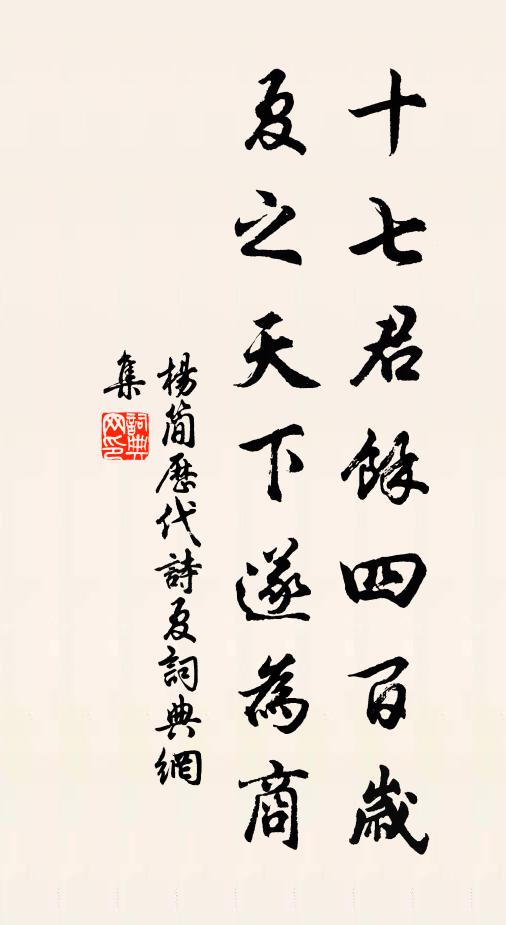 十七君餘四百歲
夏之天下遂為商
楊簡歷代詩夏詞典網
集
詞典
网印